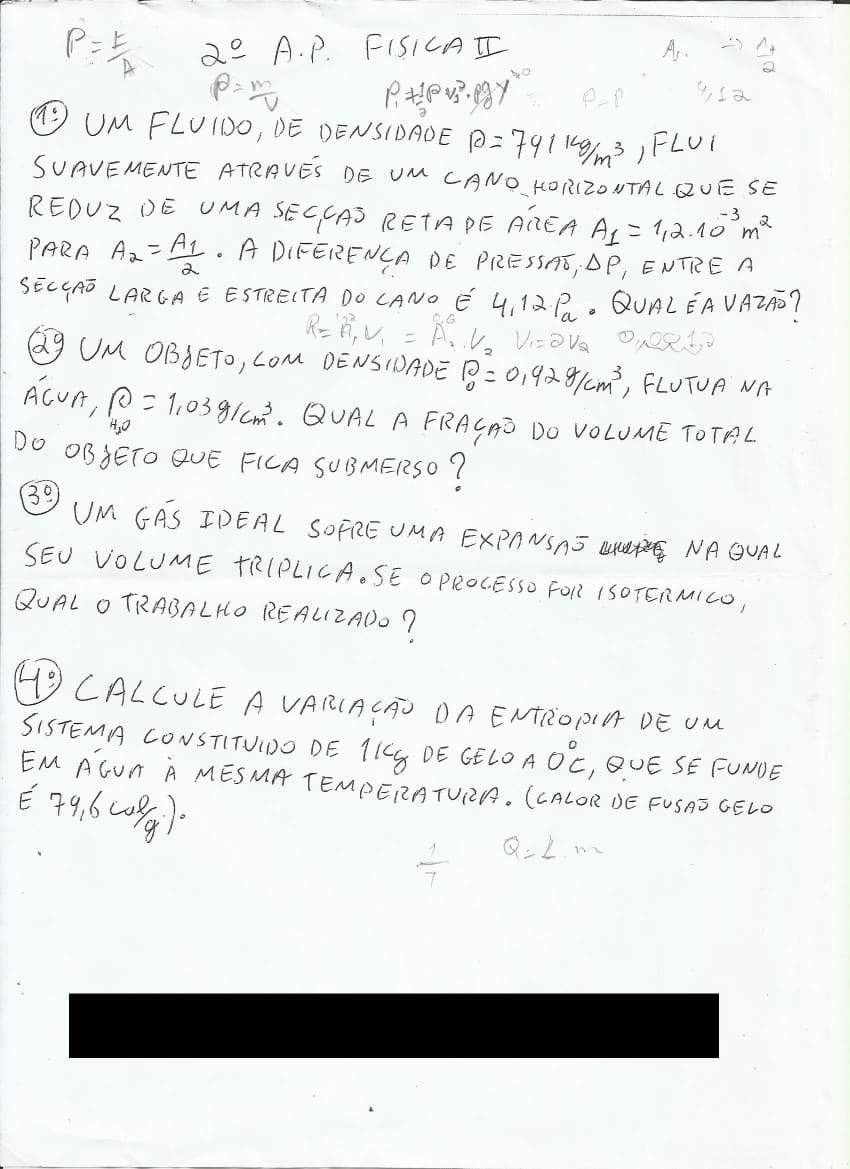 P = F/A 2º A.P. FISICA II A₁. → 1/2
ρ = m/V 4,12
1º UM FLUIDO, DE DENSIDADE ρ = 791 kg/m³, FLUI
SUAVEMENTE ATRAVÉS DE UM CANO HORIZONTAL QUE SE
REDUZ DE UMA SECÇÃO RETA DE ÁREA A₁ = 1,2.10⁻³ m²
PARA A₂ = A₁/2 . A DIFERENÇA DE PRESSÃO, ΔP, ENTRE A
SECÇÃO LARGA E ESTREITA DO CANO É 4,12 Pa. QUAL É A VAZÃO?
R = A₁V₁ = A₂.V₂ V₁=2V₂
2º UM OBJETO, COM DENSIDADE ρ₀ = 0,92 g/cm³, FLUTUA NA
ÁGUA, ρ H₂O = 1,03 g/cm³. QUAL A FRAÇÃO DO VOLUME TOTAL
DO OBJETO QUE FICA SUBMERSO?
3º UM GÁS IDEAL SOFRE UMA EXPANSÃO NA QUAL
SEU VOLUME TRIPLICA. SE O PROCESSO FOR ISOTERMICO,
QUAL O TRABALHO REALIZADO?
4º CALCULE A VARIAÇÃO DA ENTROPIA DE UM
SISTEMA CONSTITUIDO DE 1Kg DE GELO A 0°C, QUE SE FUNDE
EM ÁGUA À MESMA TEMPERATURA. (CALOR DE FUSÃO GELO
É 79,6 cal/g.).
1/7 Q=L.m